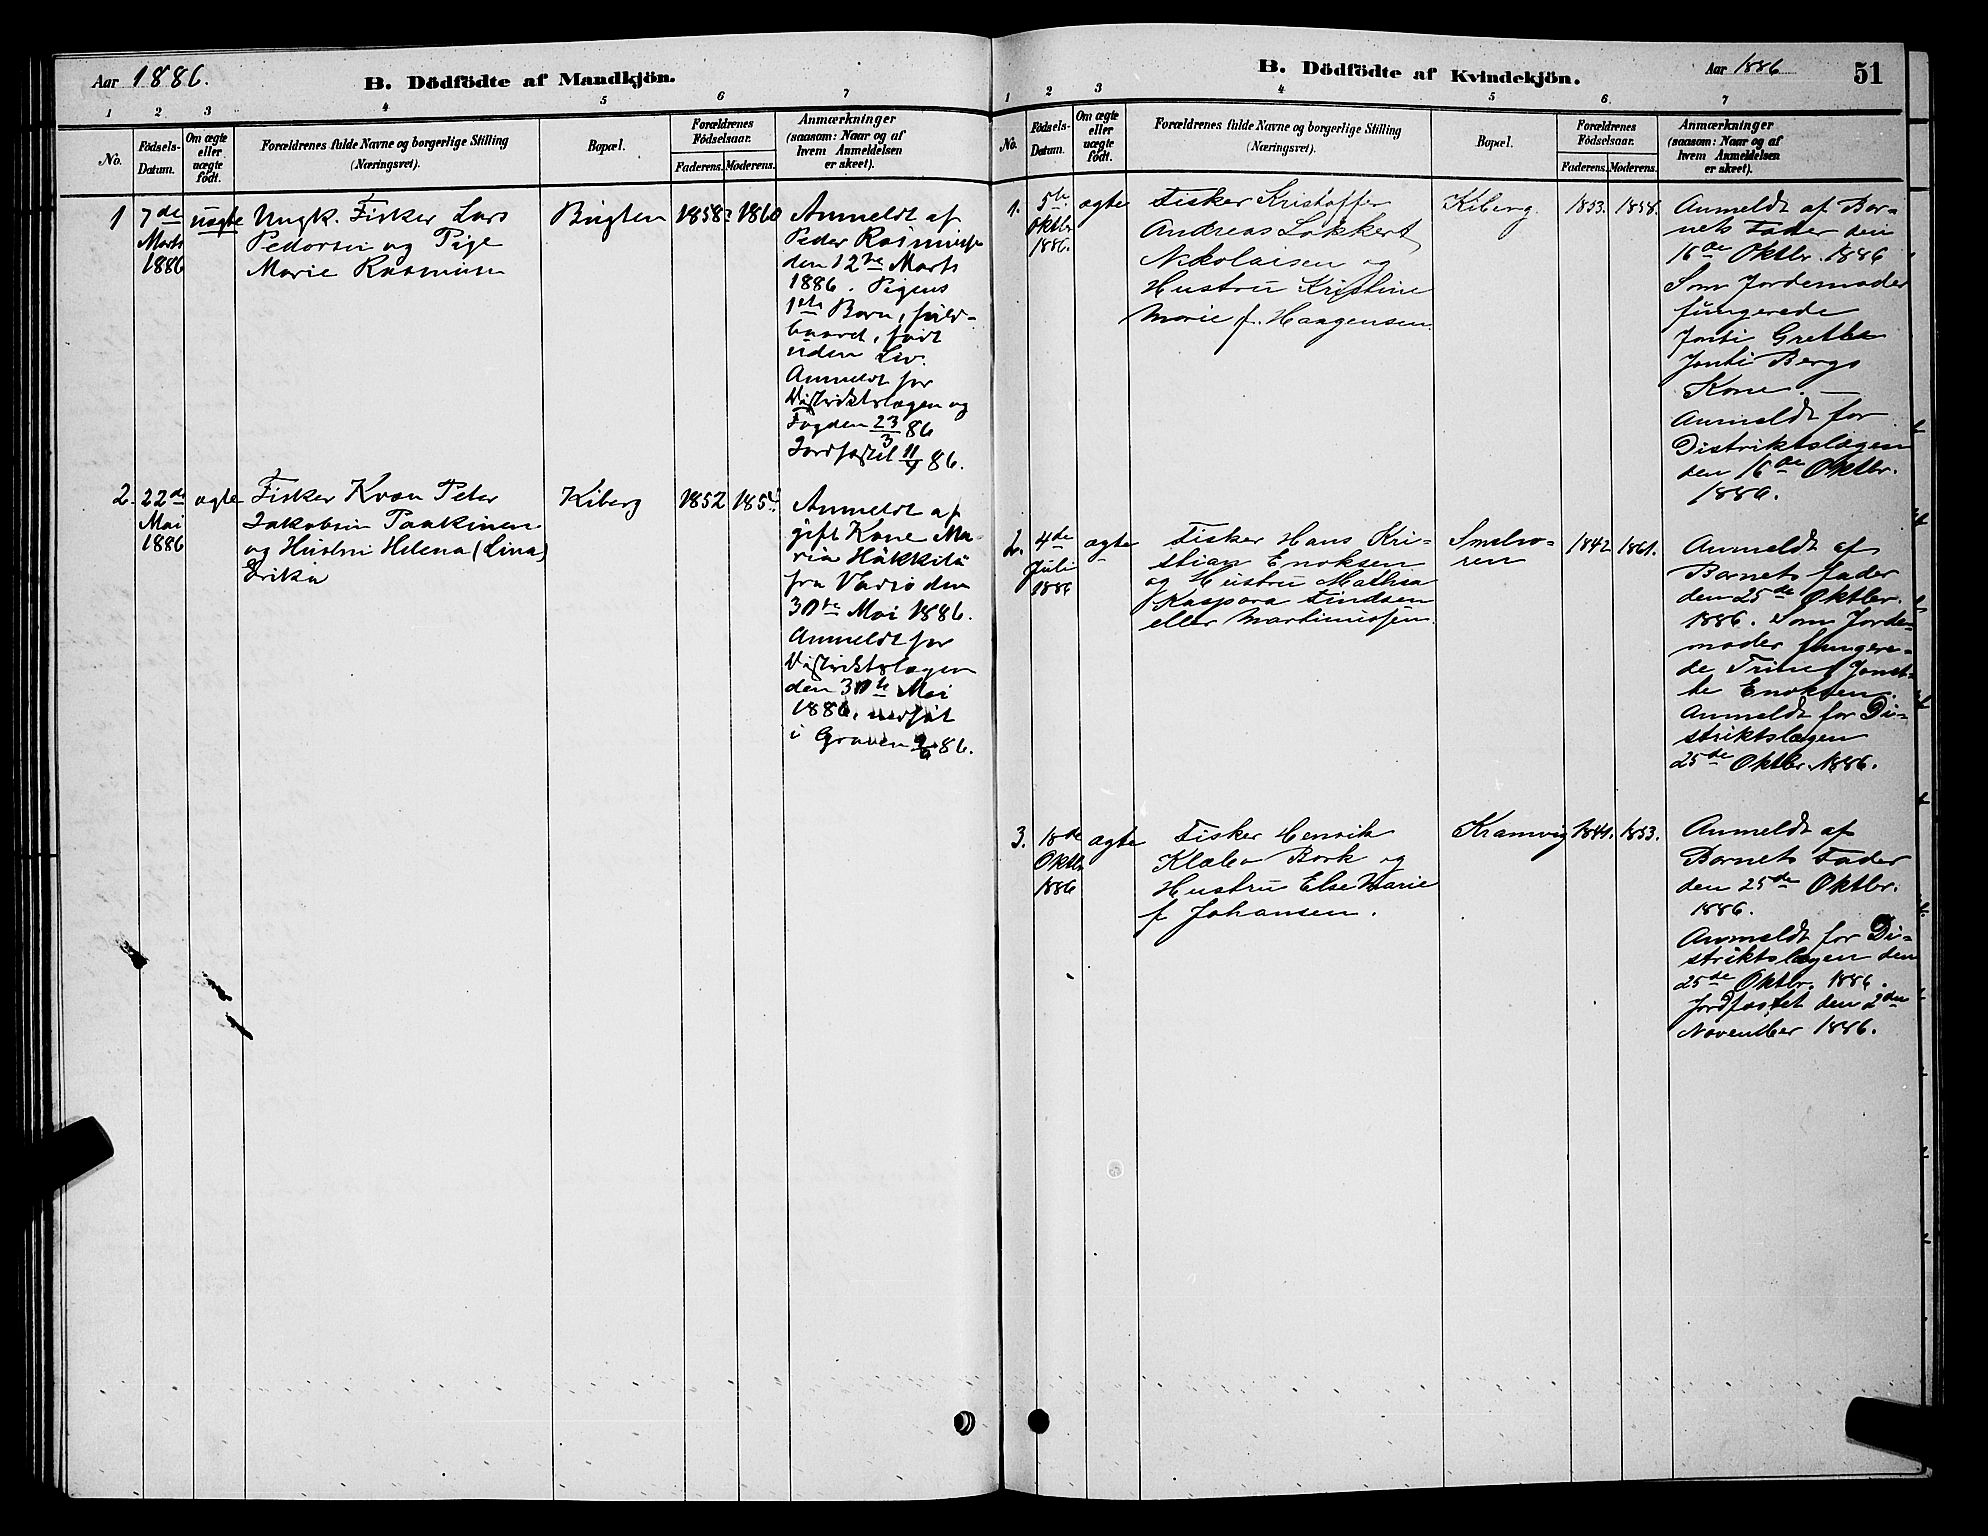 Aar 1886.
B. Dödfödte af Mandkjön.
1 2. 3 4 5 6 7
No.
Födsels-
Datum.
Om ægte
eller
uægte
født.
Forældrenes fulde Navne og borgerlige Stilling
(Næringsvei).
Bopæl.
Forældrenes
Födselsaar.
Faderens. Moderens.
Anmærkninger
(saasom: Naar og af
hvem Anmeldelsen
er skeet).
1
7de
Marts
1886
uægte
Ungk. Fisker Lars
Pedersen og Pige
Marie Rasmussen
Bugten
1858?
1860
Anmeldt af
Peder Rasmussen
den 12te Marts
1886. Pigens
1ste Barn, fuld-
baaret, født
uden Liv.
Anmeldt for
Distriktslægen og
Fogden 23/3 86
Jordfæstet 11/4 86.
2.
22de
Mai
1886
ægte
Fisker Kvæn Peter
Jakobsen Paakinen
og Hustru Helena (Lina)
Erika
Kiberg
1852
Anmeldt af
gift Kone Ma-
ria Häkkilä
fra Vadsø den
30te Mai 1886.
Anmeldt for
Distriktslægen
den 30te Mai
1886. nedsat
i Graven 86.
B. Dödfödte af Kvindekjön.
Aar 1886
51
1 2 3 4 5 6. 7
No.
Födsels-
Datum.
Om ægte
eller
uægte
födt.
Forældrenes fulde Navne og borgerlige Stilling
(Næringsvei).
Bopæl.
Forældrenes
Födselsaar.
Faderens. Moderens.
Anmærkninger
(saasom: Naar og af
hvem Anmeldelsen
er skeet).
1.
5te
Oktbr
1886.
ægte
Fisker Kristoffer
Andreas Lokkert
Nikolaisen og
Hustru Kristine
Marie f. Haagensen.
Kiberg.
1853.
1858.
Anmeldt af Bar-
nets Fader den
16de Oktbr. 1886
Som Jordemoder
fungerede
Grethe
Bergs
Kone. —
Anmeldt for
Distriktslægen
den 16de Oktbr.
1886.
2.
4de
Juli
1886
ægte
Fisker Hans Kri-
stian Enoksen
og Hustru Mathea
Kaspara Findsen
eller Martinussen.
Smelro-
ren
1842
1861.
Anmeldt af
Barnets fader
den 25de Oktbr.
1886. Som Jorde-
moder fungere-
de Trine Janet-
te Enoksen.
Anmeldt for Di-
striktslægen
25de Oktbr. 1886.
3.
18de
Oktbr
1886
ægte
Fisker Henrik
Klæbo Bork og
Hustru Else Marie
f Johansen.
Kramvig
1853.
Anmeldt af
Barnets Fader
den 25de Oktbr.
1886.
Anmeldt for Di-
striktslægen den
25de Oktbr. 1886.
Jordfæstet den 2den
November 1886.